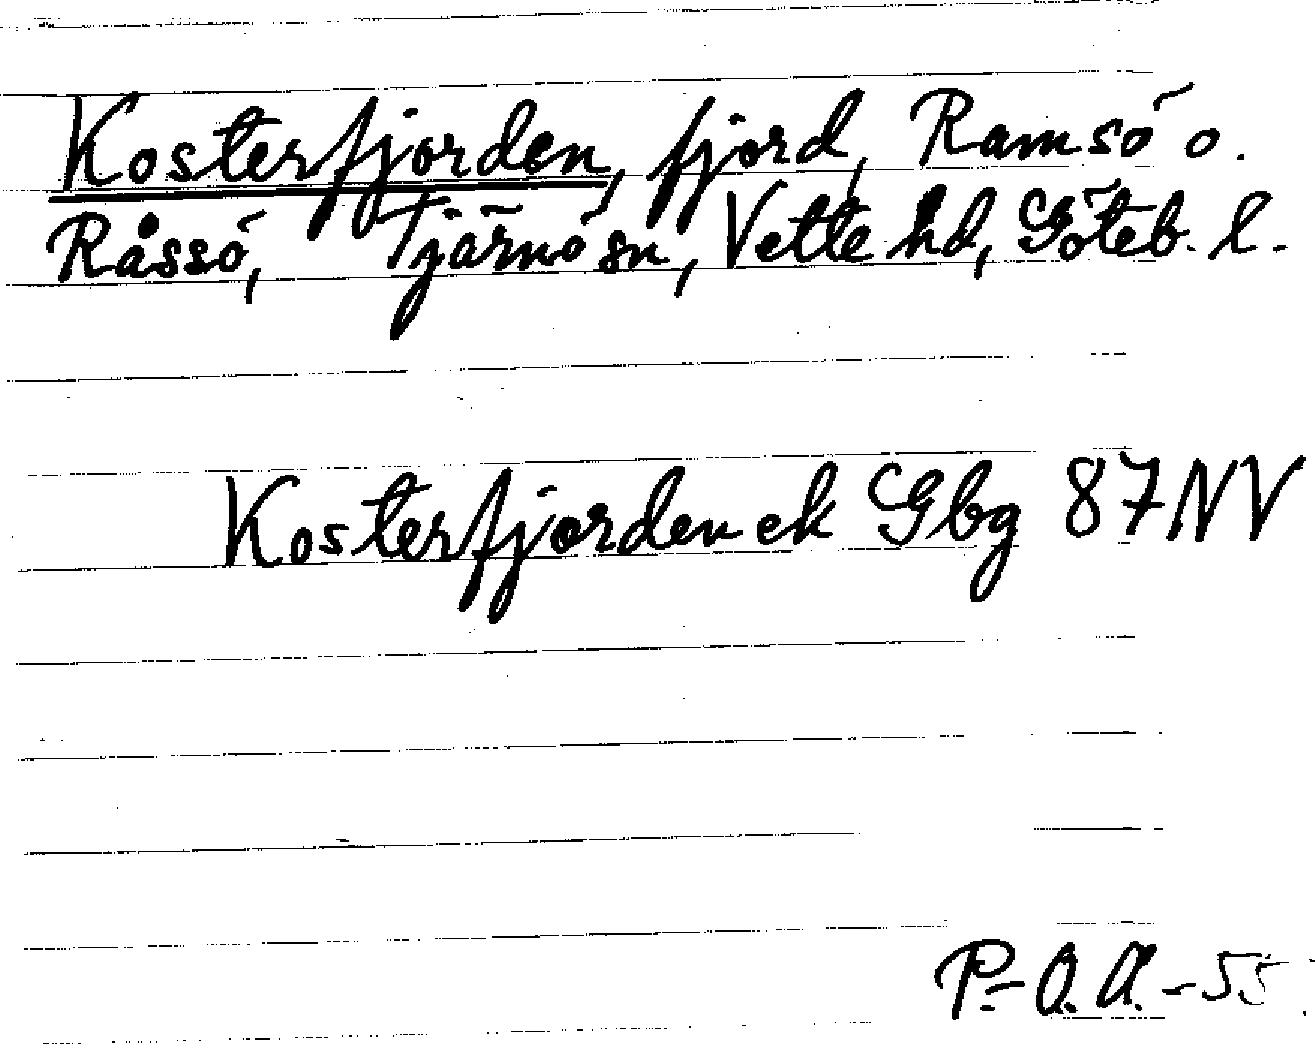 Kosterfjorden, fjord, Ramsö o.
Råssö, Tjärnö sn, Vette hd, Göteb. l.
Kosterfjorden ek Gbg 87NV
P-O.A.-55